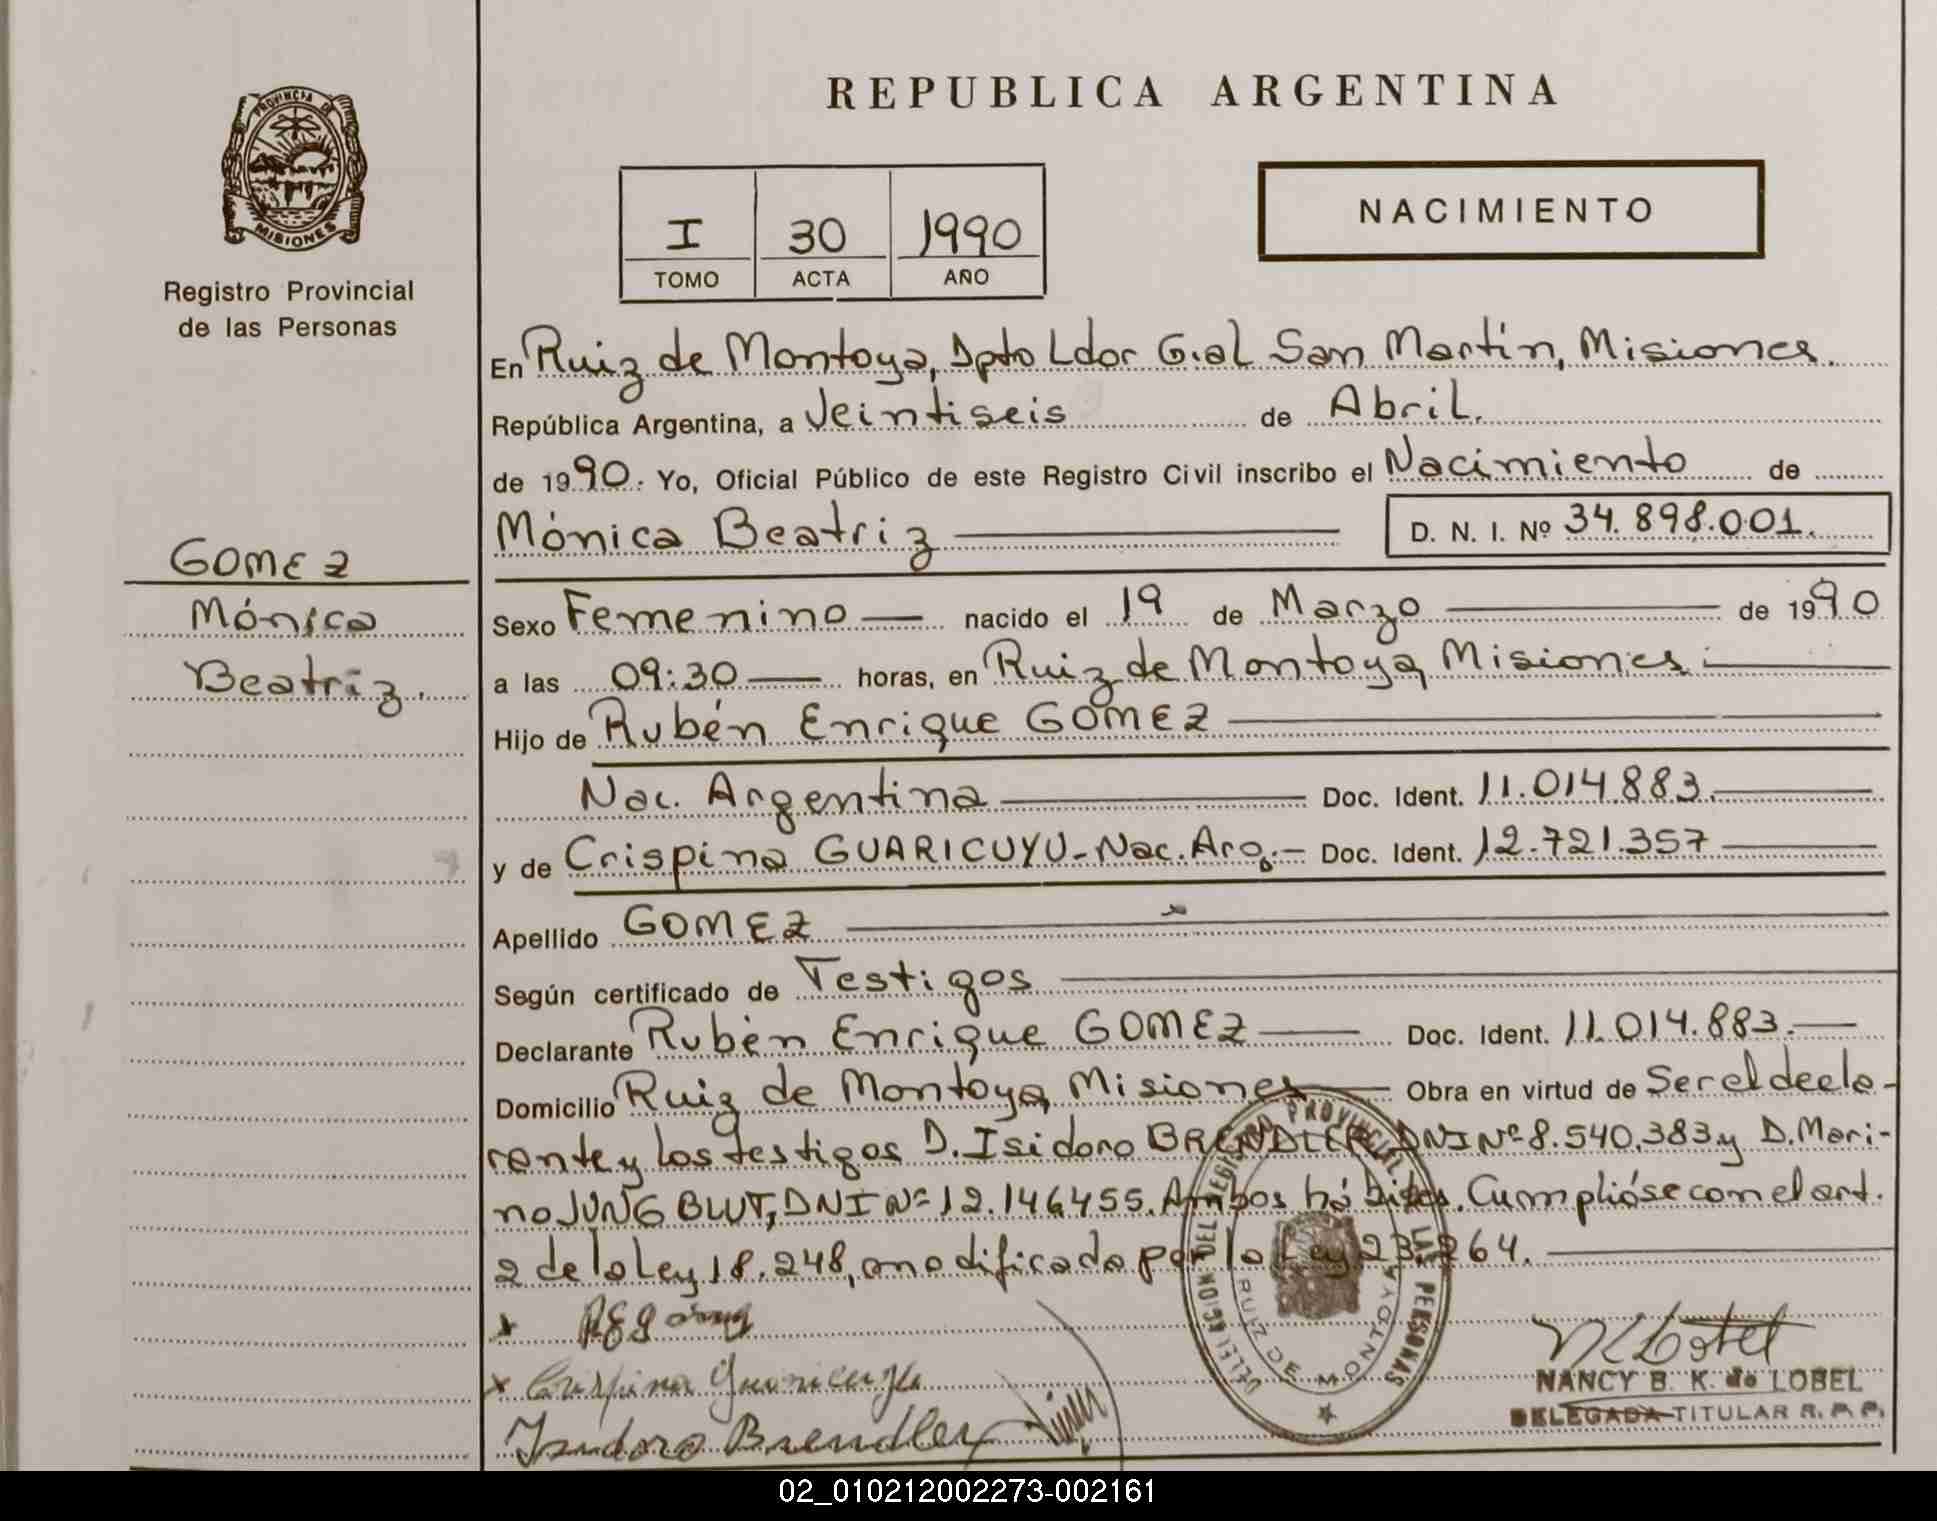 REPUBLICA ARGENTINA
PROVINCIA DE
MISIONES
Registro Provincial
de las Personas
I 30 1990
TOMO ACTA AÑO
NACIMIENTO
En Ruiz de Montoya, Dpto Ldor G.al San Martín, Misiones.
República Argentina, a Veintiseis de Abril.
de 1990. Yo, Oficial Público de este Registro Civil inscribo el Nacimiento de
Mónica Beatriz D. N. I. Nº 34.898.001.
GOMEZ
Mónica
Beatriz.
Sexo Femenino nacido el 19 de Marzo de 1990
a las 09:30 horas, en Ruiz de Montoya, Misiones.
Hijo de Rubén Enrique GOMEZ
Nac. Argentina Doc. Ident. 11.014.883.
y de Crispina GUARICUYU-Nac. Arg.- Doc. Ident. 12.721.357
Apellido GOMEZ
Según certificado de Testigos
Declarante Rubén Enrique GOMEZ Doc. Ident. 11.014.883.
Domicilio Ruiz de Montoya, Misiones Obra en virtud de Ser el decla-
rante y los testigos D. Isidoro BRENDLER DNI Nº 8.540.383 y D. Mari-
no JUNGBLUT, DNI Nº 12.146.455. Ambos hábiles. Cumplióse con el art.
2 de la Ley 18.248, modificada por la Ley 23.264.
DELEGACION DEL REGISTRO PROVINCIAL DE LAS PERSONAS
RUIZ DE MONTOYA
Crispina Guaricuyu
Isidoro Brendler
NANCY B. K. de LOBEL
DELEGADA TITULAR R. P. P.
02_010212002273-002161